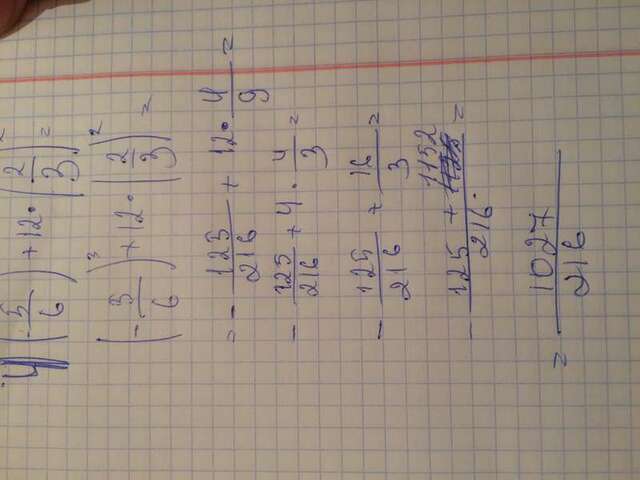 4) (-5/6) + 12 · (2/3)² =
(-5/6)³ + 12 · (2/3)² =
= - 125/216 + 12 · 4/9 =
- 125/216 + 4 · 4/3 =
- 125/216 + 16/3 =
- 125 + 1152/216 =
= 1027/216